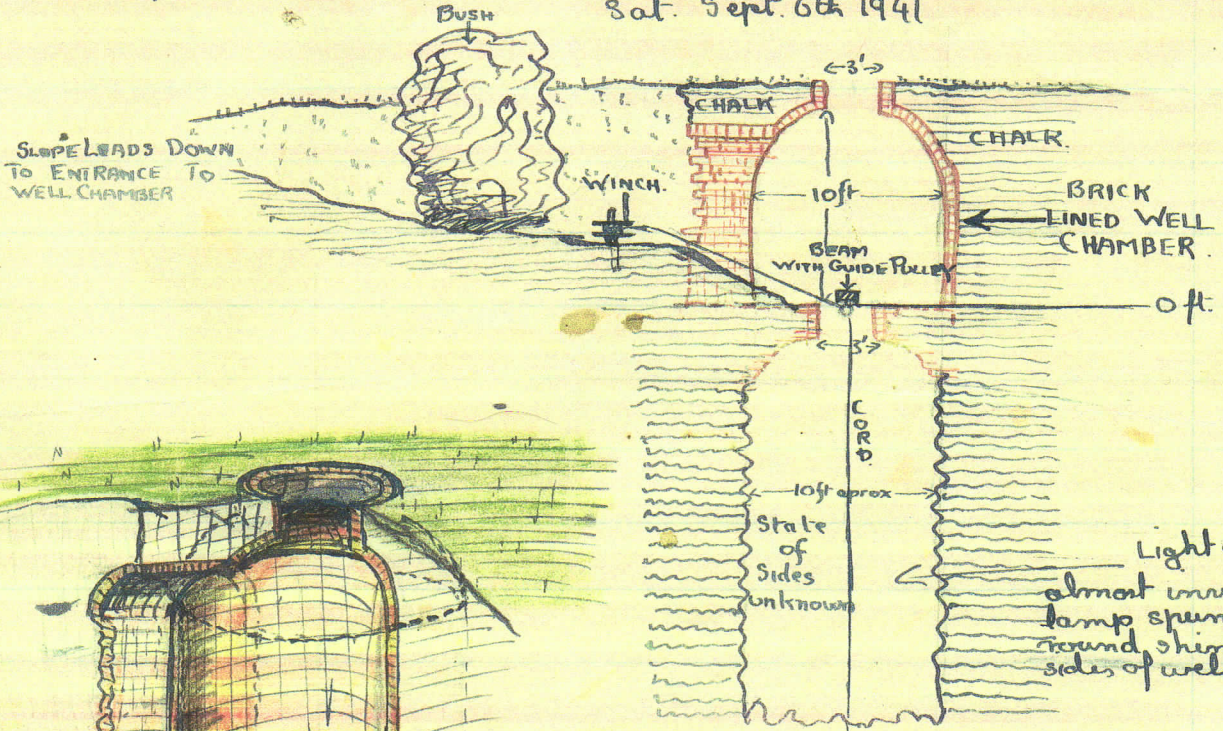 Sat. Sept. 6th 1941
BUSH
3'
CHALK
CHALK.
SLOPE LEADS DOWN
TO ENTRANCE TO
WELL CHAMBER
WINCH.
10ft
BRICK
LINED WELL
CHAMBER.
BEAM
WITH GUIDE PULLEY
0 ft.
3'
CORD.
10ft aprox
State
of
Sides
unknown
Light
almost
lamp spun
round
sides of well